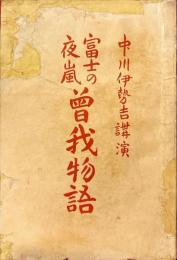 中川伊勢吉講演
富士の
夜嵐
曽我物語